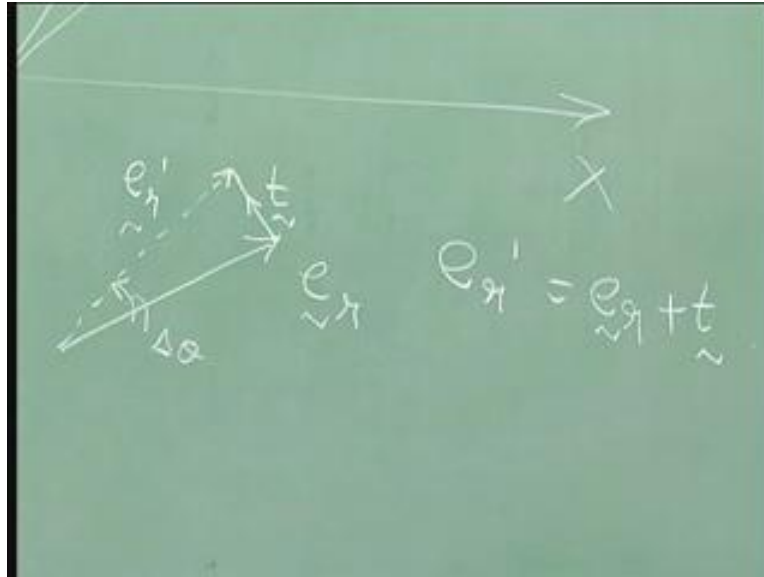 X
e_r'
t
e_r
Δθ
e_r' = e_r + t